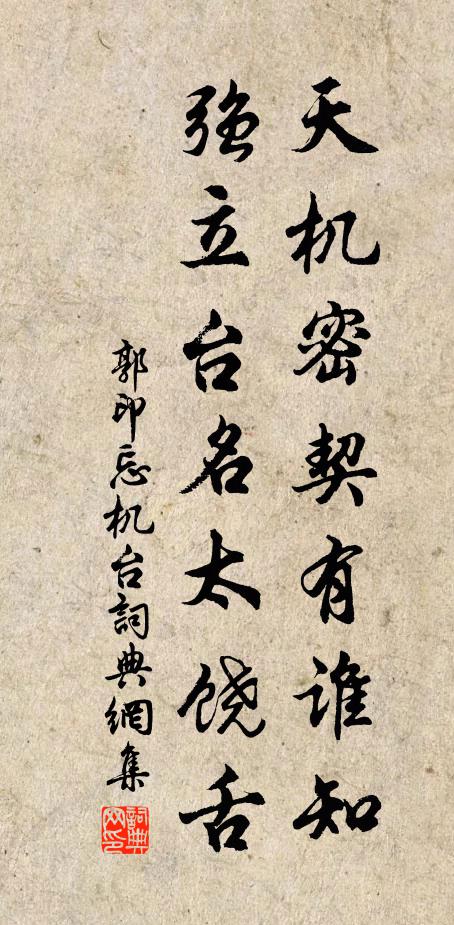 天机密契有谁知
强立台名太饶舌
郭印忘机台詞典網集
詞典网印